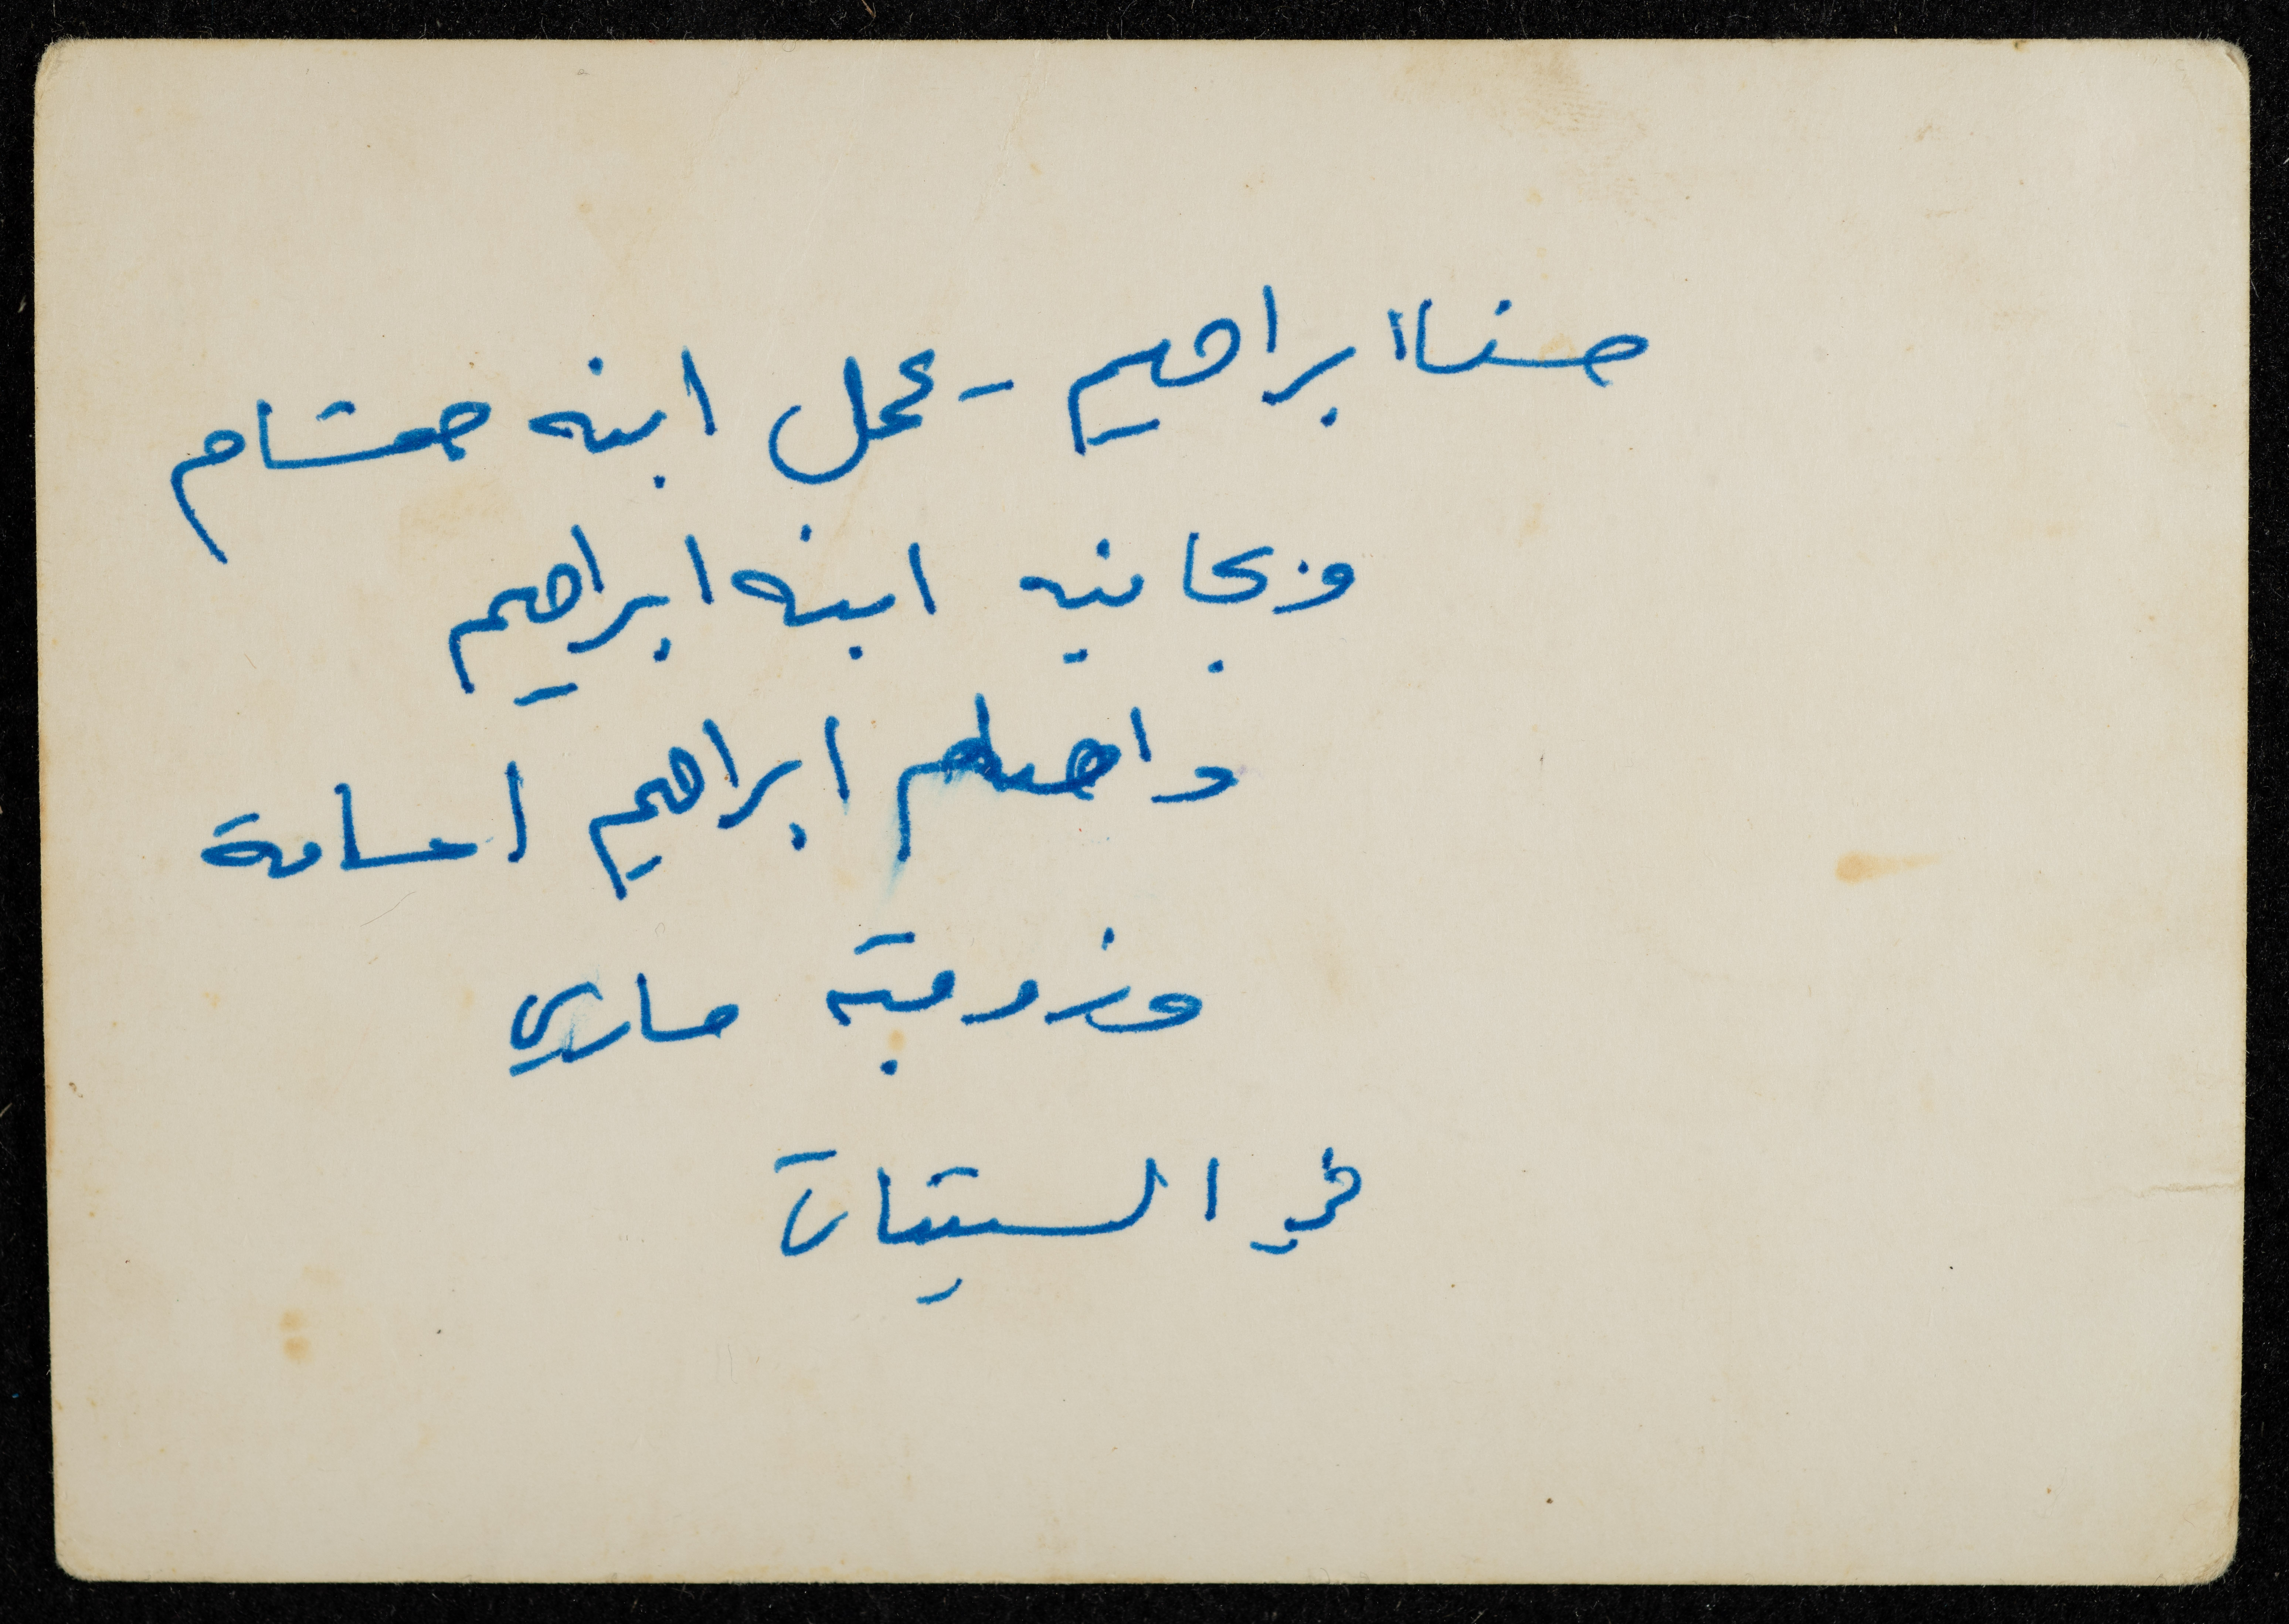 حنا ابراهيم - يحمل ابنه هشام
وبجانبه ابنه ابراهيم
وامامهم ابراهيم اسامة
وزوجته ماري
في الستينات